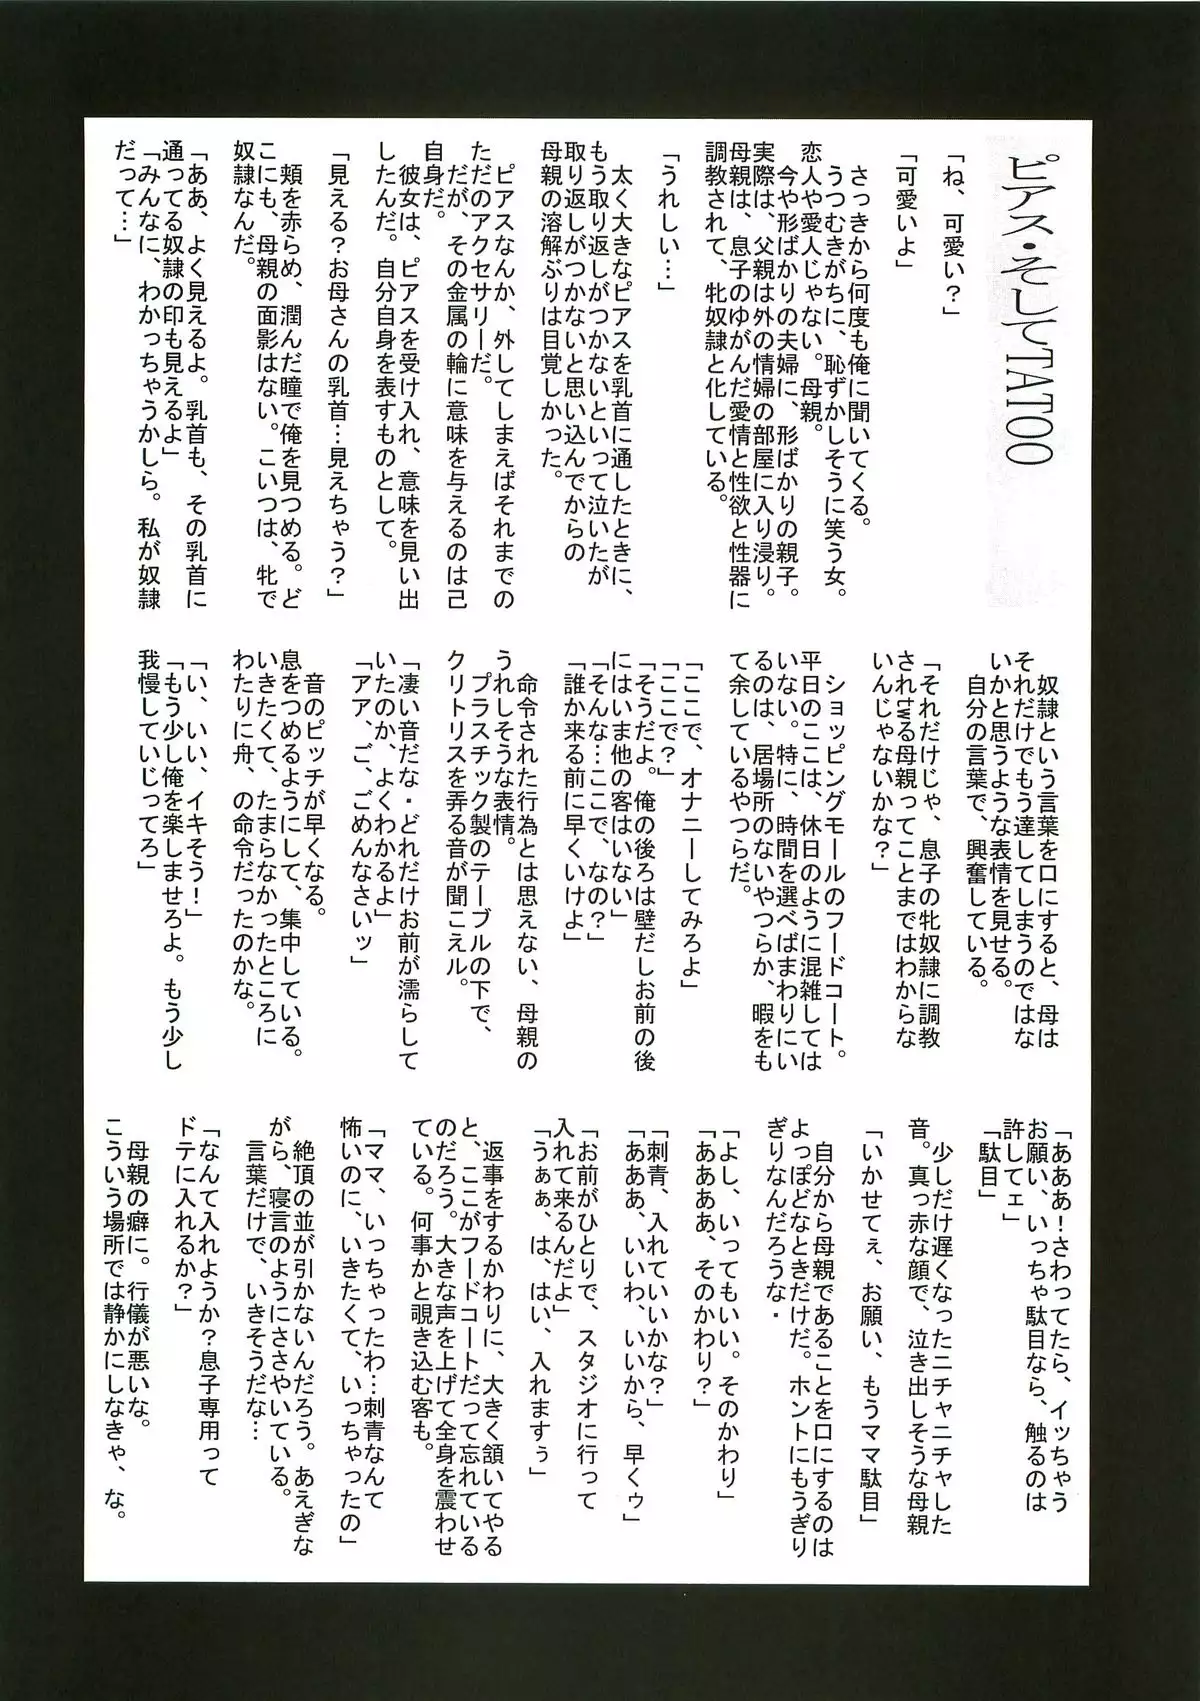 ピアス・そしてTATOO
「ね、可愛い？」
「可愛いよ」
さっきから何度も俺に聞いてくる。
うつむきがちに、恥ずかしそうに笑う女。
恋人や愛人じゃない。母親。
今や形ばかりの夫婦に、形ばかりの親子。
実際は、父親は外の情婦の部屋に入り浸り。
母親は、息子のゆがんだ愛情と性欲と性器に
調教されて、牝奴隷と化している。
「うれしい…」
太く大きなピアスを乳首に通したときに、
もう取り返しがつかないといって泣いたが、
取り返しがつかないと思い込んでからの
母親の溶解ぶりは目覚しかった。
ピアスなんか、外してしまえばそれまでの
ただのアクセサリーだ。
だが、その金属の輪に意味を与えるのは己
自身だ。
彼女は、ピアスを受け入れ、意味を見い出
したんだ。自分自身を表すものとして。
「見える？お母さんの乳首…見えちゃう？」
頬を赤らめ、潤んだ瞳で俺を見つめる。ど
こにも、母親の面影はない。こいつは、牝で
奴隷なんだ。
「ああ、よく見えるよ。乳首も、その乳首に
通ってる奴隷の印も見えるよ」
「みんなに、わかっちゃうかしら。私が奴隷
だって…」
奴隷という言葉を口にすると、母は
それだけでもう達してしまうのではな
いかと思うような表情を見せる。
自分の言葉で、興奮している。
「それだけじゃ、息子の牝奴隷に調教
されtwる母親ってことまではわからな
いんじゃないかな？」
ショッピングモールのフードコート。
平日のここは、休日のように混雑しては
いない。特に、時間を選べばまわりにい
るのは、居場所のないやつらか、暇をも
て余しているやつらだ。
「ここで、オナニーしてみろよ」
「ここで？」
「そうだよ。俺の後ろは壁だしお前の後
にはいま他の客はいない」
「そんな…ここで、なの？」
「誰か来る前に早くいけよ」
命令された行為とは思えない、母親の
うれしそうな表情。
プラスチック製のテーブルの下で、
クリトリスを弄る音が聞こえル。
「凄い音だな・どれだけお前が濡らして
いたのか、よくわかるよ」
「アア、ご、ごめんなさいッ」
音のピッチが早くなる。
息をつめるようにして、集中している。
いきたくて、たまらなかったところに
わたりに舟、の命令だったのかな。
「い、いい、イキそう！」
「もう少し俺を楽しませろよ。もう少し
我慢していじってろ」
「あああ！さわってたら、イッちゃう
お願い、いっちゃ駄目なら、触るのは
許してェ」
「駄目」
少しだけ遅くなったニチャニチャした
音。真っ赤な顔で、泣き出しそうな母親
「いかせてぇ、お願い、もうママ駄目」
自分から母親であることを口にするのは
よっぽどなときだけだ。ホントにもうぎり
ぎりなんだろうな・
「よし、いってもいい。そのかわり」
「ああああ、そのかわり？」
「刺青、入れていいかな？」
「あああ、いいわ、いいから、早くゥ」
「お前がひとりで、スタジオに行って
入れて来るんだよ」
「うぁぁ、は、はい、入れますぅ」
返事をするかわりに、大きく頷いてやる
と、ここがフードコートだって忘れている
のだろう。大きな声を上げて全身を震わせ
ている。何事かと覗き込む客も。
「ママ、いっちゃったわ…刺青なんて
怖いのに、いきたくて、いっちゃったの」
絶頂の並が引かないんだろう。あえぎな
がら、寝言のようにささやいている。
言葉だけで、いきそうだな…
「なんて入れようか？息子専用って
ドテに入れるか？」
母親の癖に。行儀が悪いな。
こういう場所では静かにしなきゃ、な。